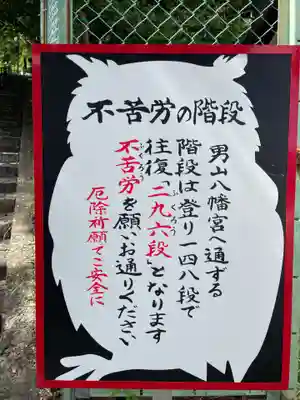 不苦労の階段
男山八幡宮へ通ずる
階段は登り一四八段で
往復“二九六段”となります
ふくろう
不苦労を願いお通りください
ふくろう
厄除祈願でご安全に